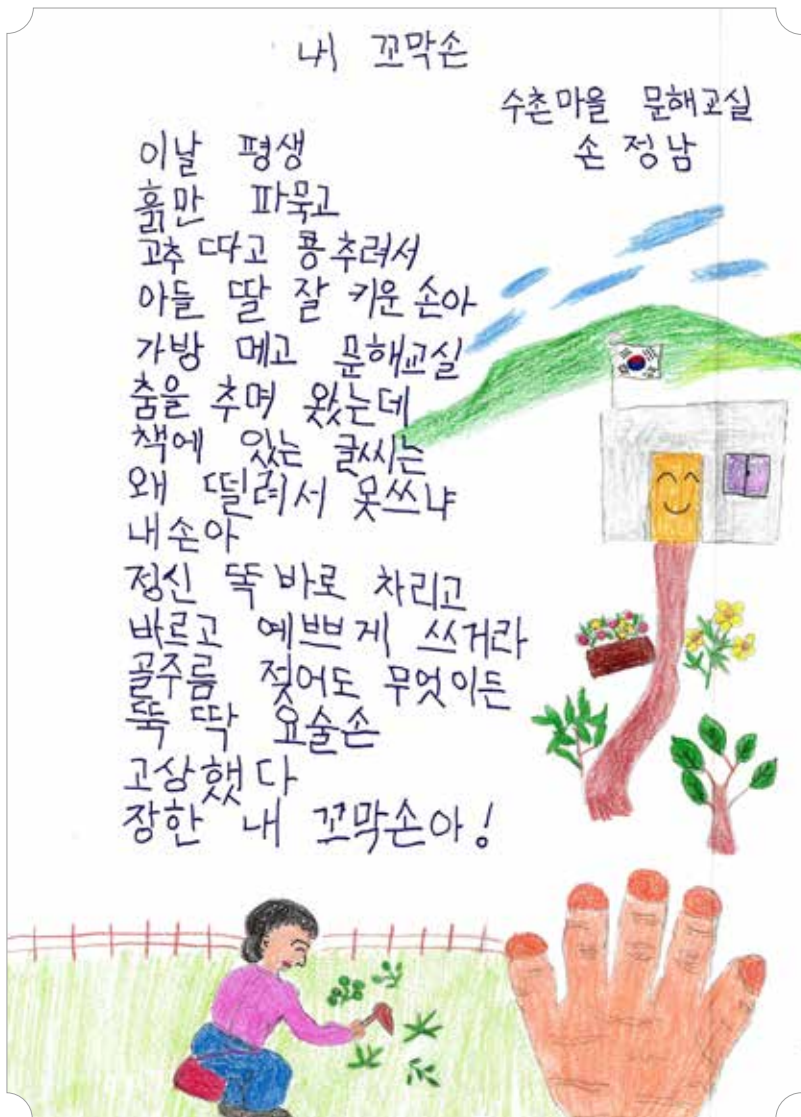 내 꼬막손
수촌마을 문해교실
손정남
이날 평생
흙만 파묵고
고추 따고 콩추려서
아들 딸 잘 키운 손아
가방 메고 문해교실
춤을 추며 왔는데
책에 있는 글씨는
왜 떨려서 못쓰냐
내손아
정신 똑바로 차리고
바르고 예쁘게 쓰거라
골주름 젖어도 무엇이든
뚝딱 요술손
고상했다
장한 내 꼬막손아!